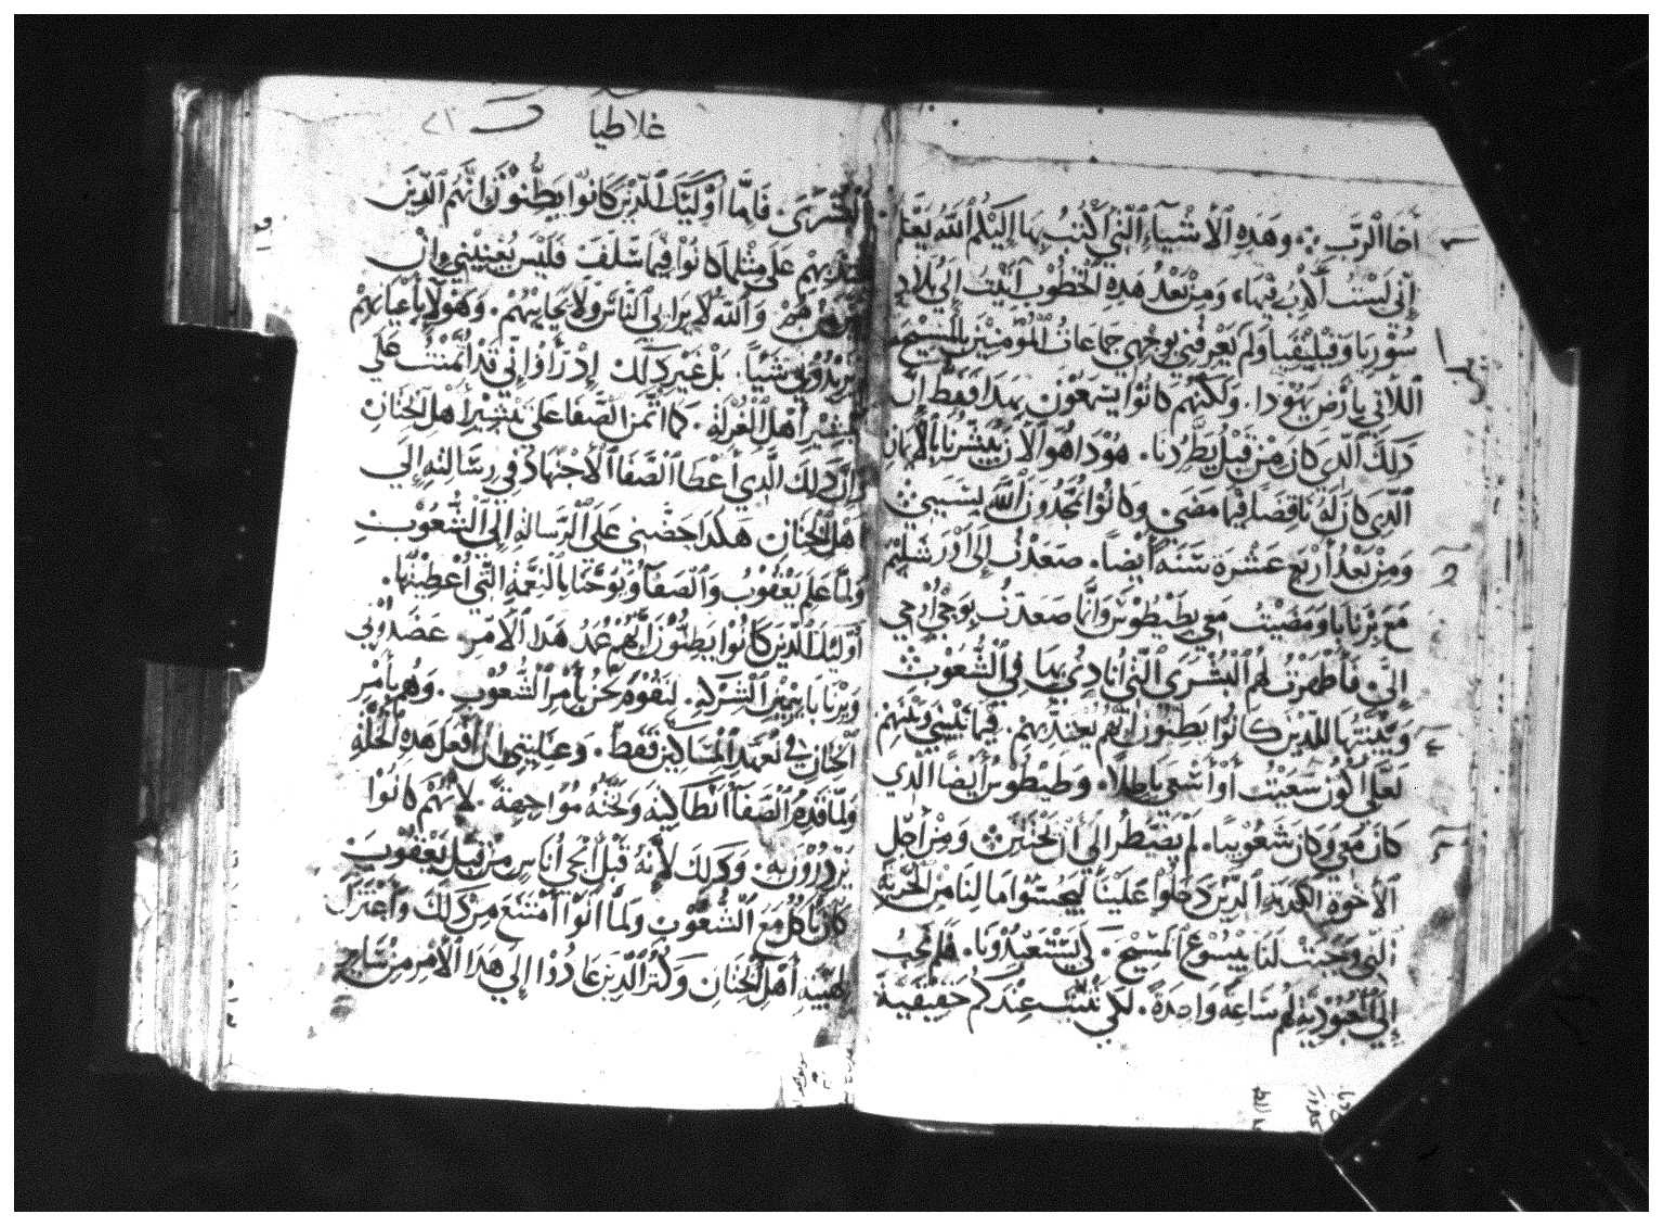 أَخَا ٱلرَّبِّ ؞ وهَذِهِ ٱلأَشْيَآءِ ٱلَّتِي أَكْتُبُ بِهَا إِلَيْكُمُ ٱللَّهُ يَعْلَمُ
إِنِّي لَسْتُ أَكْذِبُ فِيْهَا، وَمِنْ بَعْدُ هَذِهِ ٱلْخُطُوْبِ أَتَيْتُ إِلَى بِلَادِ
سُوْرِيَا وَقِيْلِيْقْيَا وَلَم يَعْرِفُنِي بِوَجْهِي جَمَاعَاتُ ٱلْمُؤْمِنِيْنَ بِٱلْمَسِيْحِ
ٱللَّاتِي بِأَرْضِ يَهُوْدَا. وَلَكِنَّهُمْ كَانُوْا يَسْمَعُوْنَ بِهَذَا فَقَطْ أَنَّ
ذَلِكَ ٱلَّذِي كَانَ مِنْ قَبْلُ يَطْرُدُنَا. هُوَذَا هُوَ ٱلْآنَ يُبَشِّرُنَا بِٱلْإِيْمَانِ
ٱلَّذِي كَانَ لَهُ نَاقِضًا فِيْمَا مَضَى. وَكَانُوْا يُمَجِّدُوْنَ ٱللَّهَ بِسَبَبِي ؞
وَمِنْ بَعْدُ أَرْبَعَ عَشْرَةَ سَنَةً أَيْضًا. صَعَدْتُ إِلَى أَوْرَشَلِيْمَ
مَعَ بَرْنَابَا وَمَضَيْتُ مَعِي بِطِيْطُوْسَ وَإِنَّمَا صَعَدْتُ بِوَحْيٍ أُوْحِيَ
إِلَيَّ فَأَظْهَرْتُ لَهُمُ ٱلْبُشْرَى ٱلَّتِي أُنَادِي بِهَا فِي ٱلشُّعُوْبِ
وَبَيَّنْتُهَا لِلَّذِيْنَ كَانُوْا يَظُنُّوْنَ أَنَّهُمْ يُعْتَدُّ بِهِمْ. فِيْمَا بَيْنِي وَبَيْنَهُمْ
لَعَلِّي أَكُوْنُ سَعَيْتُ أَوْ أَسْعَى بَاطِلًا. وَطِيْطُوسُ أَيْضًا ٱلَّذِي
كَانَ مَعِي وَكَانَ شَعُوْبِيًّا. لَمْ يُضْطَرَّ إِلَى أَنْ يَخْتَتِنَ ؞ وَمِنْ أَجْلِ
ٱلْأُخْوَةِ ٱلْكَذَبَةِ ٱلَّذِيْنَ دَخَلُوْا عَلَيْنَا لِيَجُسُّوْا مَا لَنَا مِنَ ٱلْحُرِّيَّةِ
ٱلَّتِي وَجَبَتْ لَنَا بِيَسُوْعَ ٱلْمَسِيْحِ. كَي يَسْتَعْبِدُوْنَا. فَلَمْ نُجِبْ
إِلَى ٱلْعُبُوْدِيَّةِ لَهُمْ سَاعَةً وَاحِدَةً. لِكَي تَثْبُتَ عِنْدَكُمْ حَقِيْقَةُ
غلاطيا
ٱلْبُشْرَى. فَأَمَّا أُوْلَئِكَ ٱلَّذِيْنَ كَانُوْا يَظُنُّوْنَ أَنَّهُمُ ٱلَّذِيْنَ
يُعْتَدُّ بِهِمْ عَلَى مِثْلِ مَا كَانُوْا فِيْمَا سَلَفَ فَلَيْسَ يُعْنِيْنِي وإِنْ
مَنْ هُمْ وَٱللَّهُ لَا يُرَائِي ٱلنَّاسَ وَلَا يُحَابِيْهُمْ. وَهَؤُلَاءِ بِأَعْيَانِهِمْ
لَمْ يَزِيْدُوْنِي شَيْئًا. بَلْ غَيْرَ ذَلِكَ إِذْ رَأَوْا إِنِّي قَدْ ائْتُمِنْتُ عَلَى
تَبْشِيْرِ أَهْلِ ٱلْغُرْلَةِ. كَمَا ائْتُمِنَ ٱلصَّفَا عَلَى تَبْشِيْرِ أَهْلِ ٱلْخِتَانِ
وَإِنَّ ذَلِكَ ٱلَّذِي أَعْطَا ٱلصَّفَا ٱلْأَجْتِهَادَ فِي رِسَالَتِهِ إِلَى
أَهْلِ ٱلْخِتَانِ هَكَذَا حَضَّنِي عَلَى ٱلرِّسَالَةِ إِلَى ٱلشُّعُوْبِ
وَلَمَّا عَلِمَ يَعْقُوْبُ وَٱلصَّفَا وَيُوْحَنَّا بِٱلنِّعْمَةِ ٱلَّتِي أُعْطِيْتُهَا.
أُوْلَئِكَ ٱلَّذِيْنَ كَانُوْا يَظُنُّوْنَ أَنَّهُمْ عُمَدُ هَذَا ٱلْأَمْرِ عَضَدُوْنِي
وَبَرْنَابَا بِيَمِيْنِ ٱلشِّرْكَةِ. لِنَقُوْمَ نَحْنُ بِأَمْرِ ٱلشُّعُوْبِ. وَهُمْ بِأَمْرِ
ٱلْخِتَانِ فِي تَعَهُّدِ ٱلْمَسَاكِيْنِ فَقَطْ. وَعِنَايَتِي أَنْ أَفْعَلَ هَذِهِ ٱلْخُلَّةِ
وَلَمَّا قَدِمَ ٱلصَّفَا أَنْطَاكِيَةَ وَبَّخْتُهُ مُوَاجَهَةً. لِأَنَّهُمْ كَانُوْا
يَزْدَرُوْنَ بِهِ. وَذَلِكَ لِأَنَّهُ قَبْلَ أَنْ يَجِي أُنَاسٌ مِنْ قِبَلِ يَعْقُوْبَ
كَانَ يَأْكُلُ مَعَ ٱلشُّعُوْبِ وَلَمَّا أَتَوْا أَمْتَنَعَ مِنْ ذَلِكَ وَٱعْتَزَلَ
لِهَيْبَةِ أَهْلِ ٱلْخِتَانِ وَكَثُرَ ٱلَّذِيْنَ عَادُوْا إِلَى هَذَا ٱلْأَمْرِ مِنْ سَايِرِ